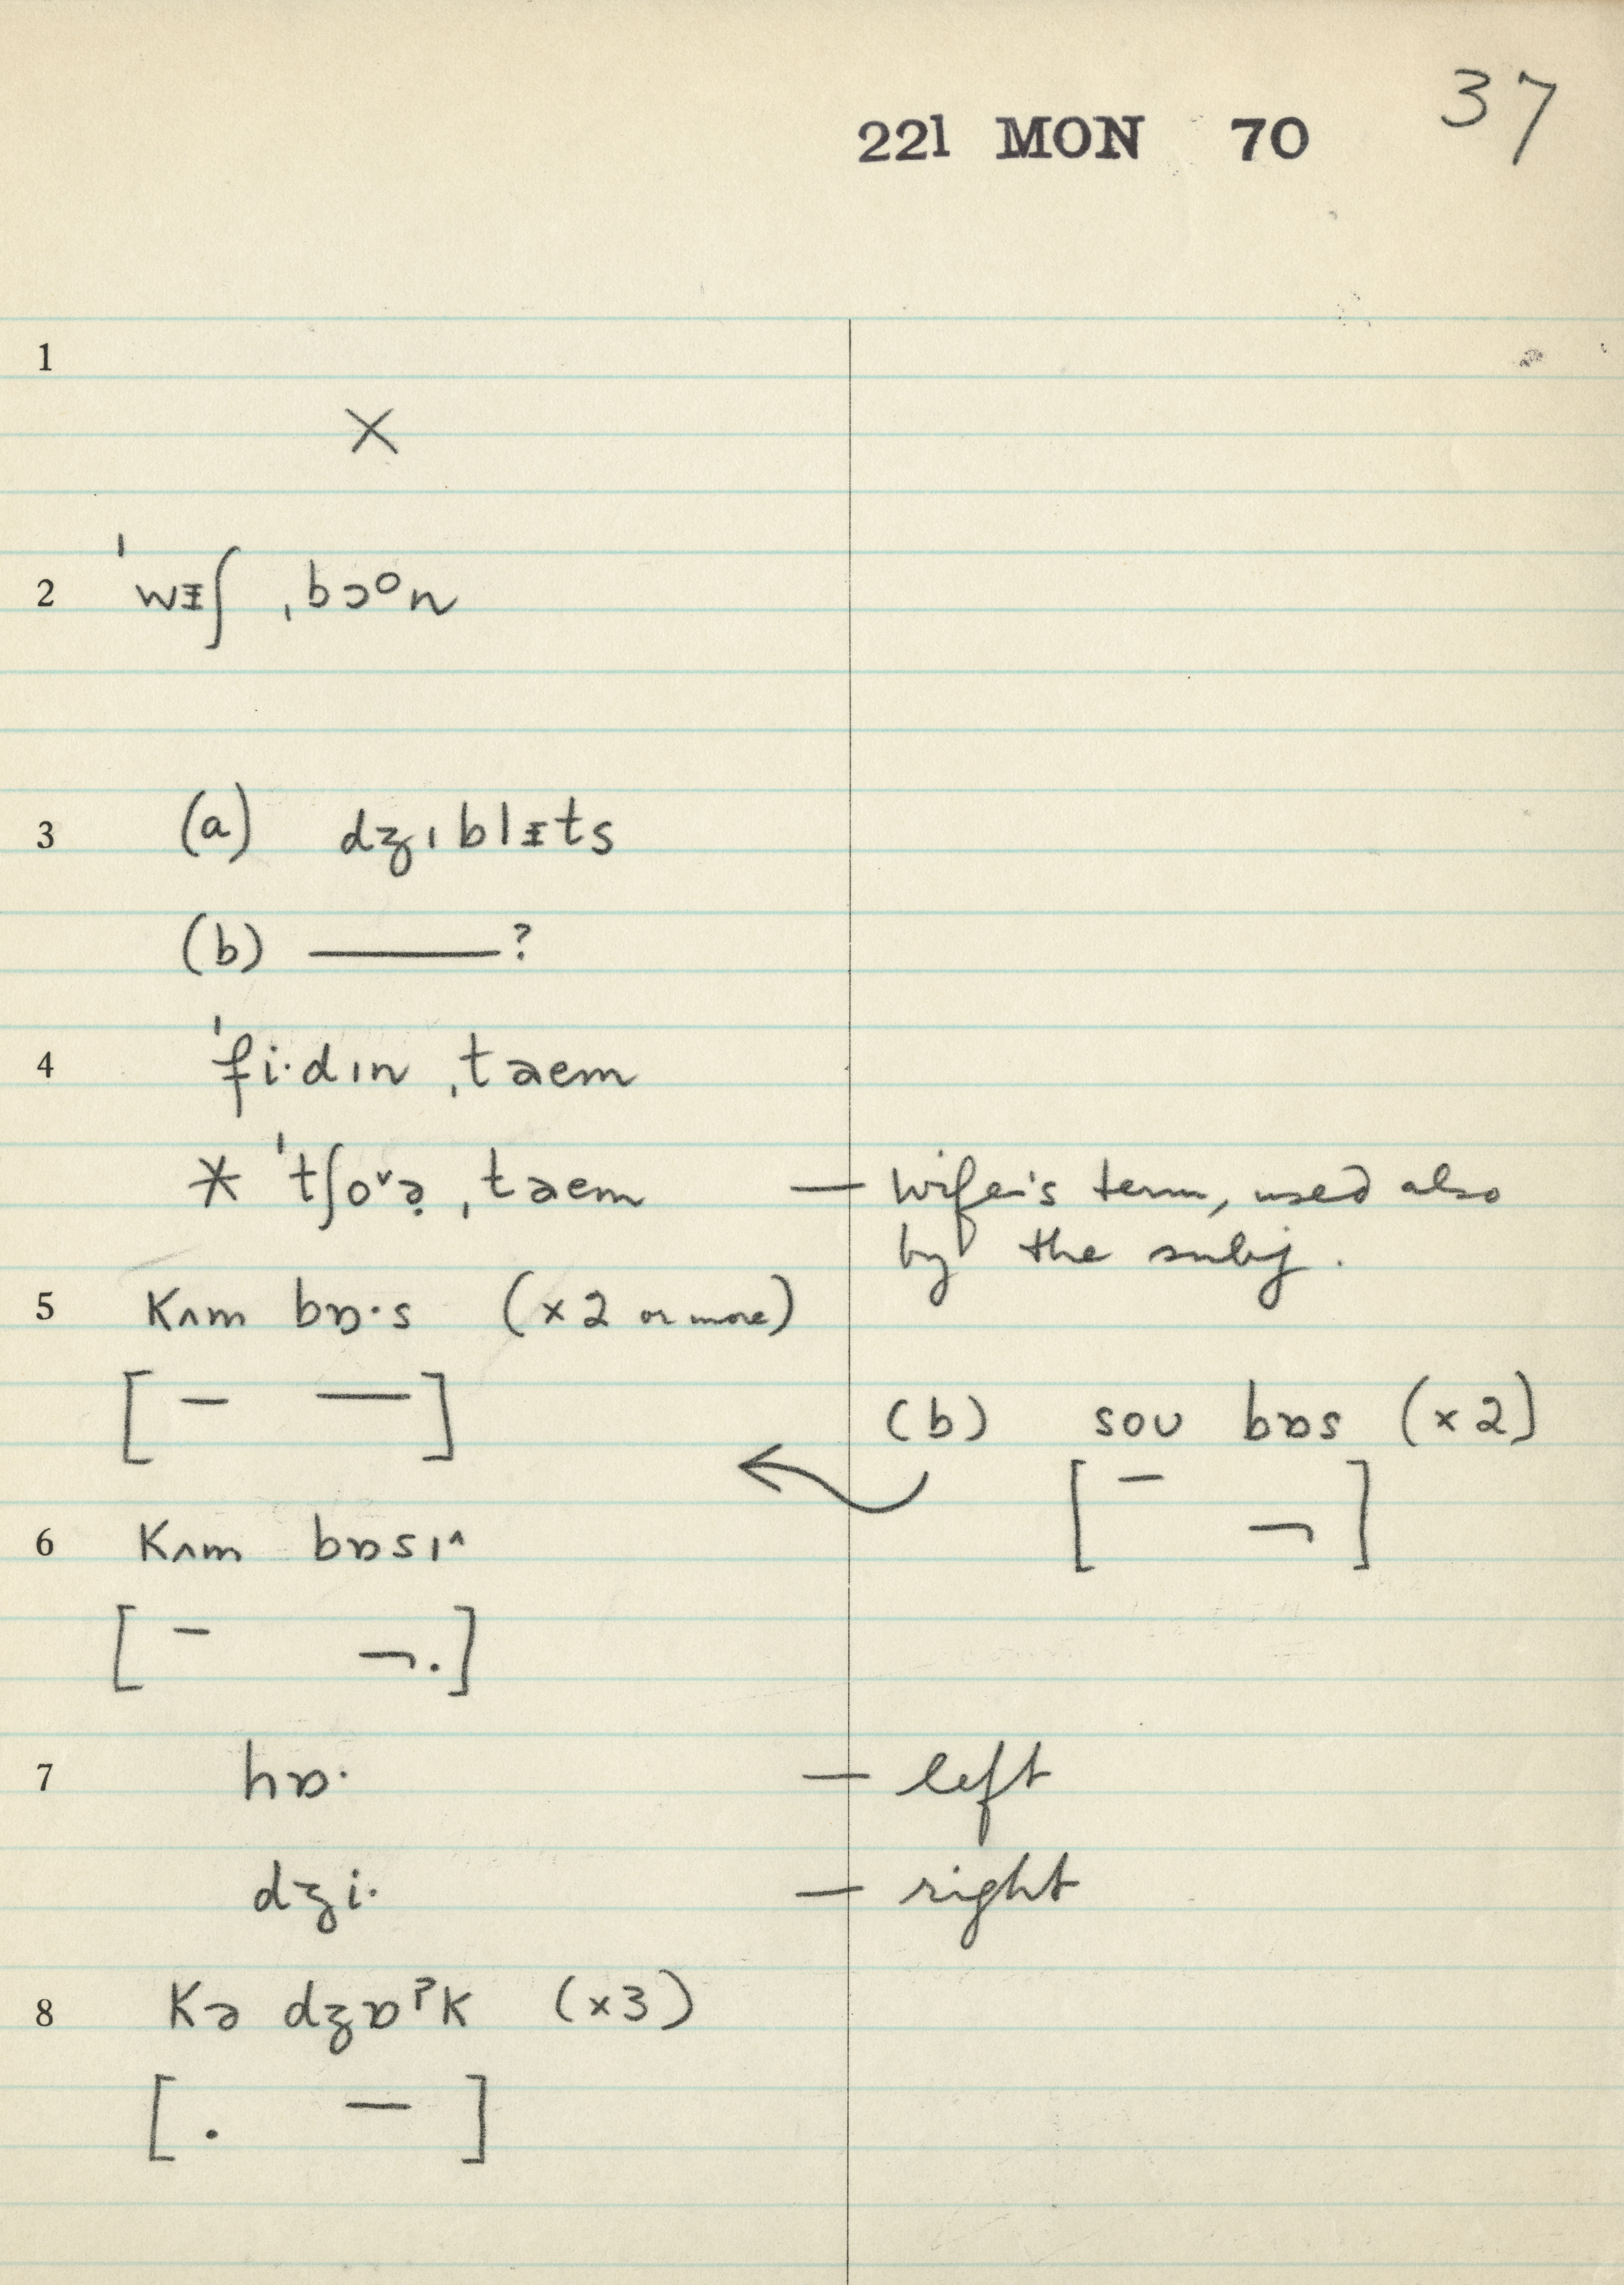 37
221 MON 70
1
×
2 ˈwɪ̵ʃ ˌbɔᵒn
3 (a) dʒɪblɪ̵ts
(b) ———?
4 ˈfi·dɪn ˌtaem
* ˈtʃoᵛə̣ ˌtaem — wife's term, used also
by the subj.
5 kʌm bɒ·s (×2 or more)
[ – — ]
(b) soʊ bɒs (×2)
[ – ¬ ]
6 kʌm bɒsɪ^
[ – ¬. ]
7 hɒ· — left
dʒi· — right
8 kə dʒɒˀk (×3)
[ . — ]